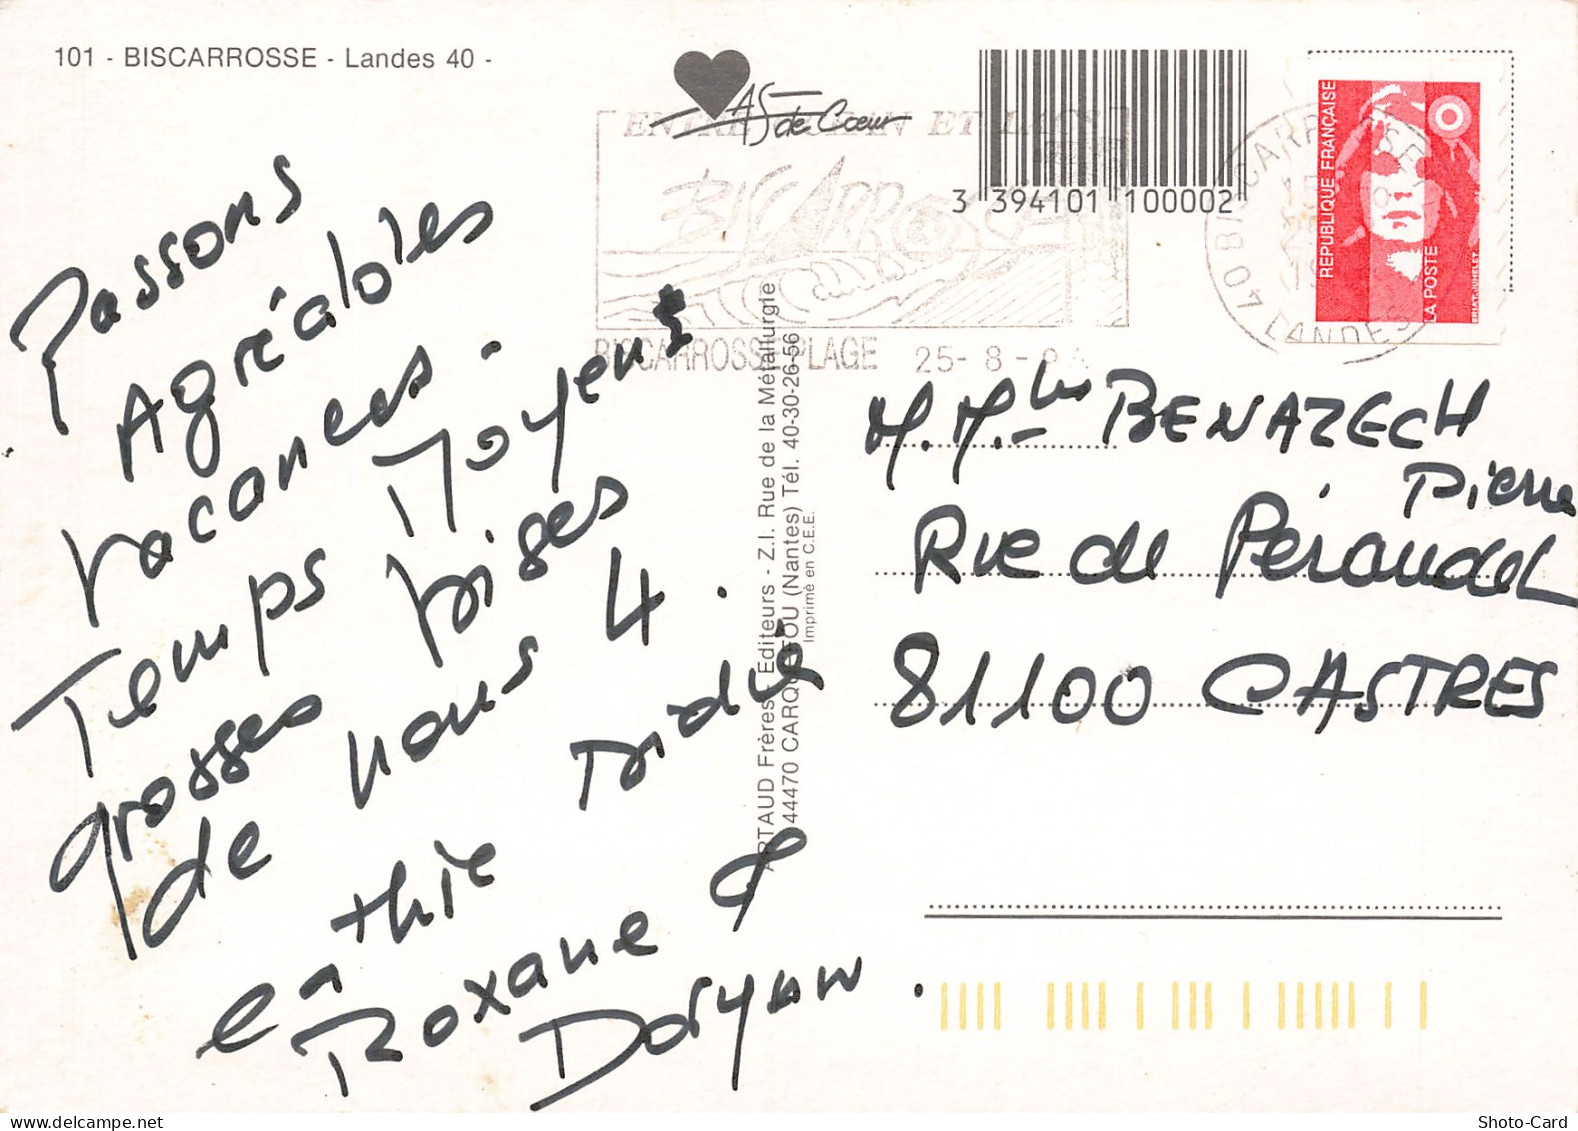 101 - BISCARROSSE - Landes 40 -
AS de Cœur
3 394101 100002
ENTRE OCEAN ET LACS
BISCARROSSE
BISCARROSSE PLAGE 25-8-
40 BISCARROSSE
LANDES
REPUBLIQUE FRANÇAISE
LA POSTE
BRIAT-JUMELET
Passons
Agréables
vacances.
Temps Moyens
grosses bises
de nous 4.
Thierry
Roxane &
Doryan.
ARTAUD Frères Editeurs - Z.I. Rue de la Métallurgie
44470 CARQUEFOU (Nantes) Tél. 40-30-26-56
Imprimé en C.E.E.
BENAZECH
Pierre
Rue de
81100 CASTRES
delcampe.net
Shoto-Card